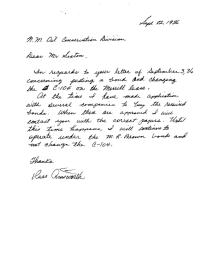 Sept. 22, 1986
N.M. Oil Conservation Division
Dear Mr Sexton,
In regards to your letter of September 3, 86
concerning posting a bond and changing
the C-104 on the Merrill lease.
At the time I have made application
with several companies to buy the required
bonds. When they are approved I will
contact you with the correct papers. Until
this time happens, I will continue to
operate under the M.R. Brown bonds and
not change the C-104.
Thanks
Russ